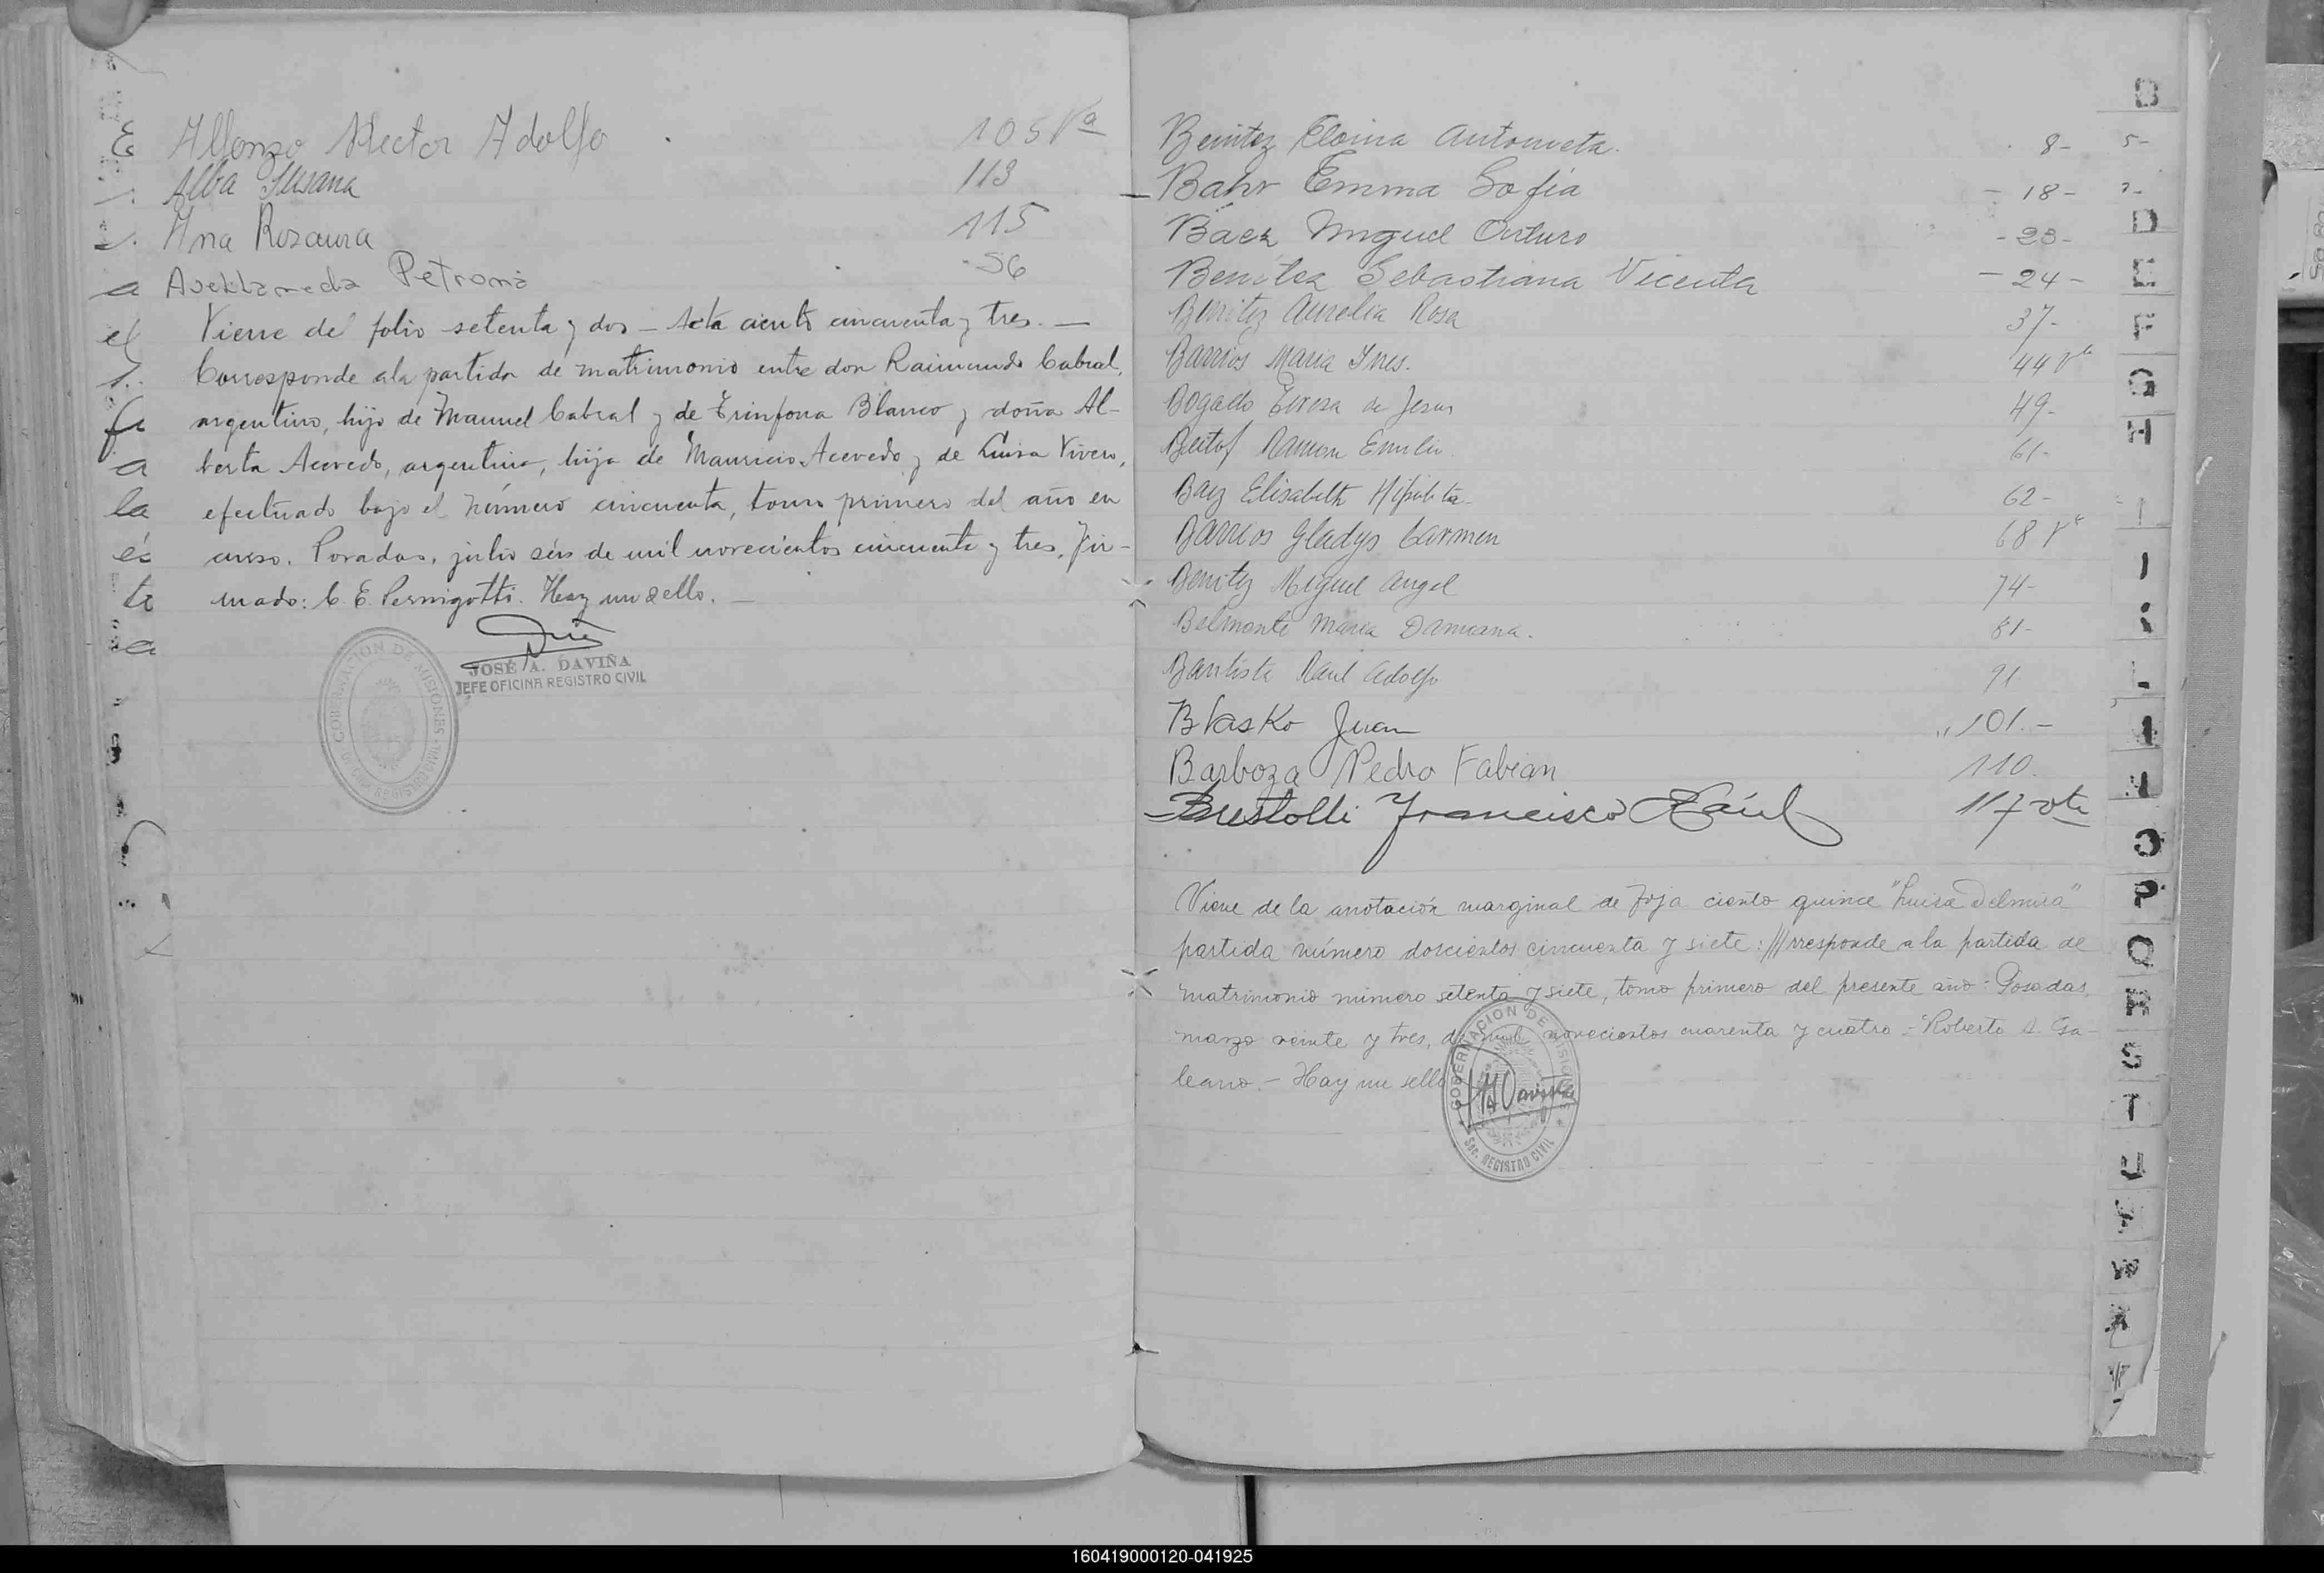 Alfonzo Hector Adolfo 105 Va
Alba Susana 113
Ana Rosaura 115
Avellaneda Petrona 56
Viene del folio setenta y dos - Acta ciento cincuenta y tres. -
Corresponde a la partida de matrimonio entre don Raimundo Cabral,
argentino, hijo de Manuel Cabral y de Trinfona Blanco y doña Al-
berta Acevedo, argentina, hija de Mauricio Acevedo y de Luisa Vivero,
efectuado bajo el número cincuenta, tomo primero del año en
curso. Posadas, julio seis de mil novecientos cincuenta y tres, Fir-
mado: C. E. Pernigotti. Hay un sello. -
JOSÉ A. DAVIÑA
JEFE OFICINA REGISTRO CIVIL
GOBERNACION DE MISIONES
REGISTRO CIVIL
Benitez Eloina Antonieta. 8-
Bahr Emma Sofia - 18 -
Baez Miguel Arturo - 23 -
Benitez Sebastiana Vicenta - 24 -
Benitez Aurelia Rosa 37-
Barrios Maria Ines. 44 Vta
Bogado Teresa de Jesus 49-
Ramon Emilio 61-
Baez Elisabeth Hipolita 62-
Barrios Gladys Carmen 68 Va
Benitez Miguel Angel 74-
Belmonte Maria Damiana. 81-
Bautista Raul Adolfo 91
Blasko Juan " 101.-
Barboza Pedro Fabian 110.
Brestolli Francisco Raúl 117 vta
Viene de la anotación marginal de foja ciento quince "Luisa Delmira"
partida número doscientos cincuenta y siete: ///rresponde a la partida de
matrimonio número setenta y siete, tomo primero del presente año - Posadas,
marzo veinte y tres, de mil novecientos cuarenta y cuatro - Roberto A. Ga-
leano. - Hay un sello
GOBERNACION DE MISIONES
Sec. REGISTRO CIVIL
B
D
E
F
G
H
I
L
O
P
Q
R
S
T
U
W
X
160419000120-041925